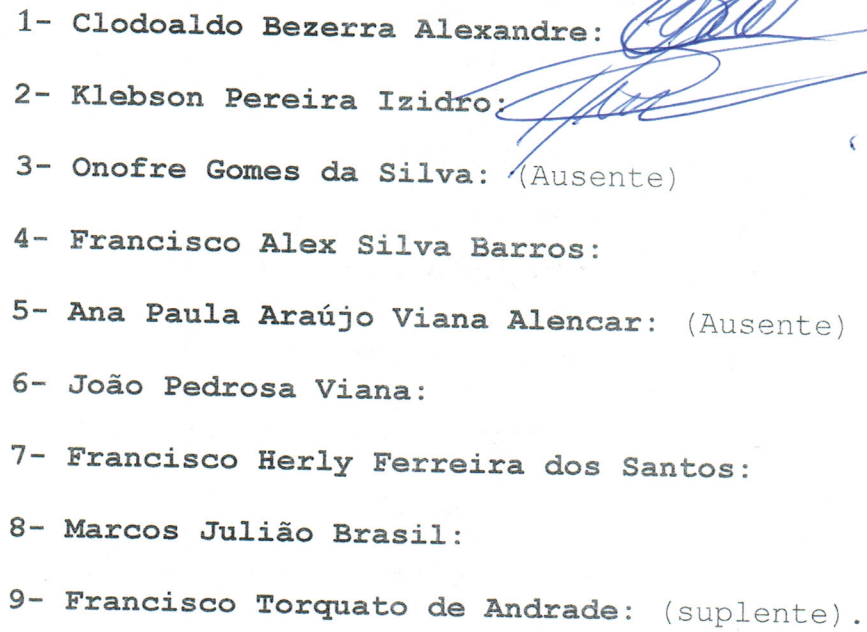 1- Clodoaldo Bezerra Alexandre:
2- Klebson Pereira Izidro:
3- Onofre Gomes da Silva: (Ausente)
4- Francisco Alex Silva Barros:
5- Ana Paula Araújo Viana Alencar: (Ausente)
6- João Pedrosa Viana:
7- Francisco Herly Ferreira dos Santos:
8- Marcos Julião Brasil:
9- Francisco Torquato de Andrade: (suplente).